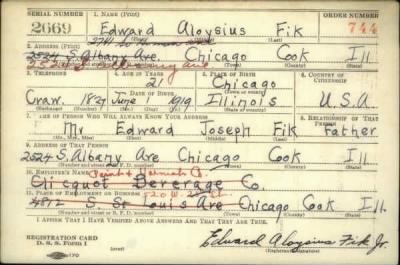 SERIAL NUMBER 1. NAME (Print) ORDER NUMBER
2669 Edward Aloysius Fik 744
(First) (Middle) (Last)
2. ADDRESS (Print)
2524 S. Albany Ave. Chicago Cook Ill
3. TELEPHONE 4. AGE IN YEARS 5. PLACE OF BIRTH 6. COUNTRY OF CITIZENSHIP
21 Chicago
DATE OF BIRTH
Craw. 1827 June 1919 Illinois U.S.A.
7. NAME OF PERSON WHO WILL ALWAYS KNOW YOUR ADDRESS 8. RELATIONSHIP OF THAT PERSON
Mr. Edward Joseph Fik Father
(Mr., Mrs., Miss) (First) (Middle) (Last)
9. ADDRESS OF THAT PERSON
2524 S. Albany Ave Chicago Cook Ill
10. EMPLOYER'S NAME
Clicquot Beverage Co.
11. PLACE OF EMPLOYMENT OR BUSINESS
4812 S. St Louis Ave Chicago Cook Ill.
(Number and street or R. F. D. number) (Town) (County) (State)
I AFFIRM THAT I HAVE VERIFIED ABOVE ANSWERS AND THAT THEY ARE TRUE.
REGISTRATION CARD
D. S. S. Form 1 Edward Aloysius Fik Jr.
(over) (Registrant's signature)